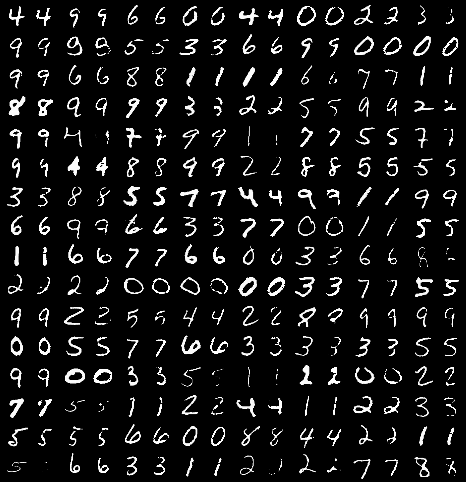 4 4 9 9 6 6 0 0 4 4 0 0 2 2 3 3
9 9 9 9 5 5 3 3 6 6 9 9 0 0 0 0
9 9 6 6 8 8 1 1 1 1 6 6 7 7 1 1
8 8 9 9 9 9 3 3 2 2 5 5 9 9 2 2
9 9 4 7 7 9 9 1 1 7 7 5 5 7 7
9 9 4 4 8 8 9 9 2 2 8 8 5 5 5 5
3 3 8 8 5 5 7 7 4 4 9 9 1 1 9 9
6 6 9 9 6 6 3 3 7 7 0 0 1 1 5 5
1 1 6 6 7 7 6 6 0 0 3 3 6 6 8
2 2 2 2 0 0 0 0 0 0 3 3 7 7 5 5
9 9 2 2 5 5 4 4 2 2 8 8 9 9 9 9
0 0 5 5 7 7 6 6 3 3 3 3 3 3 5 5
9 9 0 0 3 3 5 1 1 2 2 0 0 2 2
7 7 5 5 1 1 2 2 4 4 1 1 2 2 3 3
5 5 5 5 6 6 0 0 8 8 4 4 2 2 1 1
5 6 6 3 3 1 1 2 2 7 7 8 8